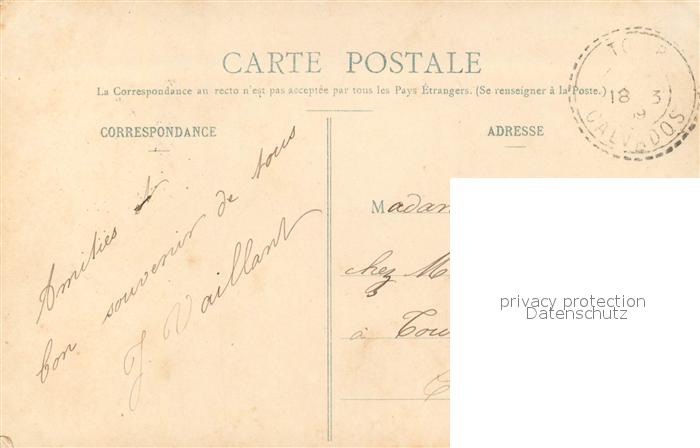 CARTE POSTALE
La Correspondance au recto n'est pas acceptée par tous les Pays Étrangers. (Se renseigner à la Poste.)
CORRESPONDANCE
Amitiés et
bon souvenir de tous
J. Vaillant
ADRESSE
18 3
CALVADOS
Madam
chez M
à Tou
privacy protection
Datenschutz